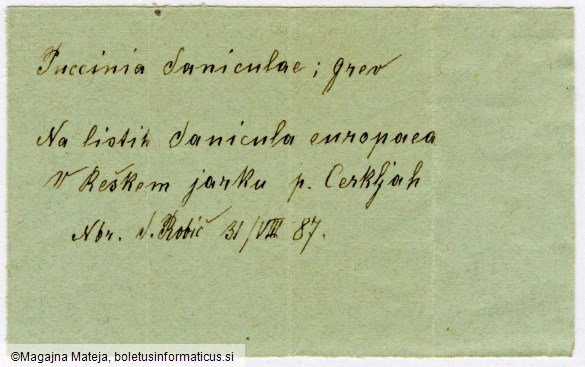 Puccinia Saniculae; grev
Na listih Sanicula europaea
V Reškem jarku p. Cerkljah
Nbr. S. Robič 31/VIII 87.
©Magajna Mateja, boletusinformaticus.si